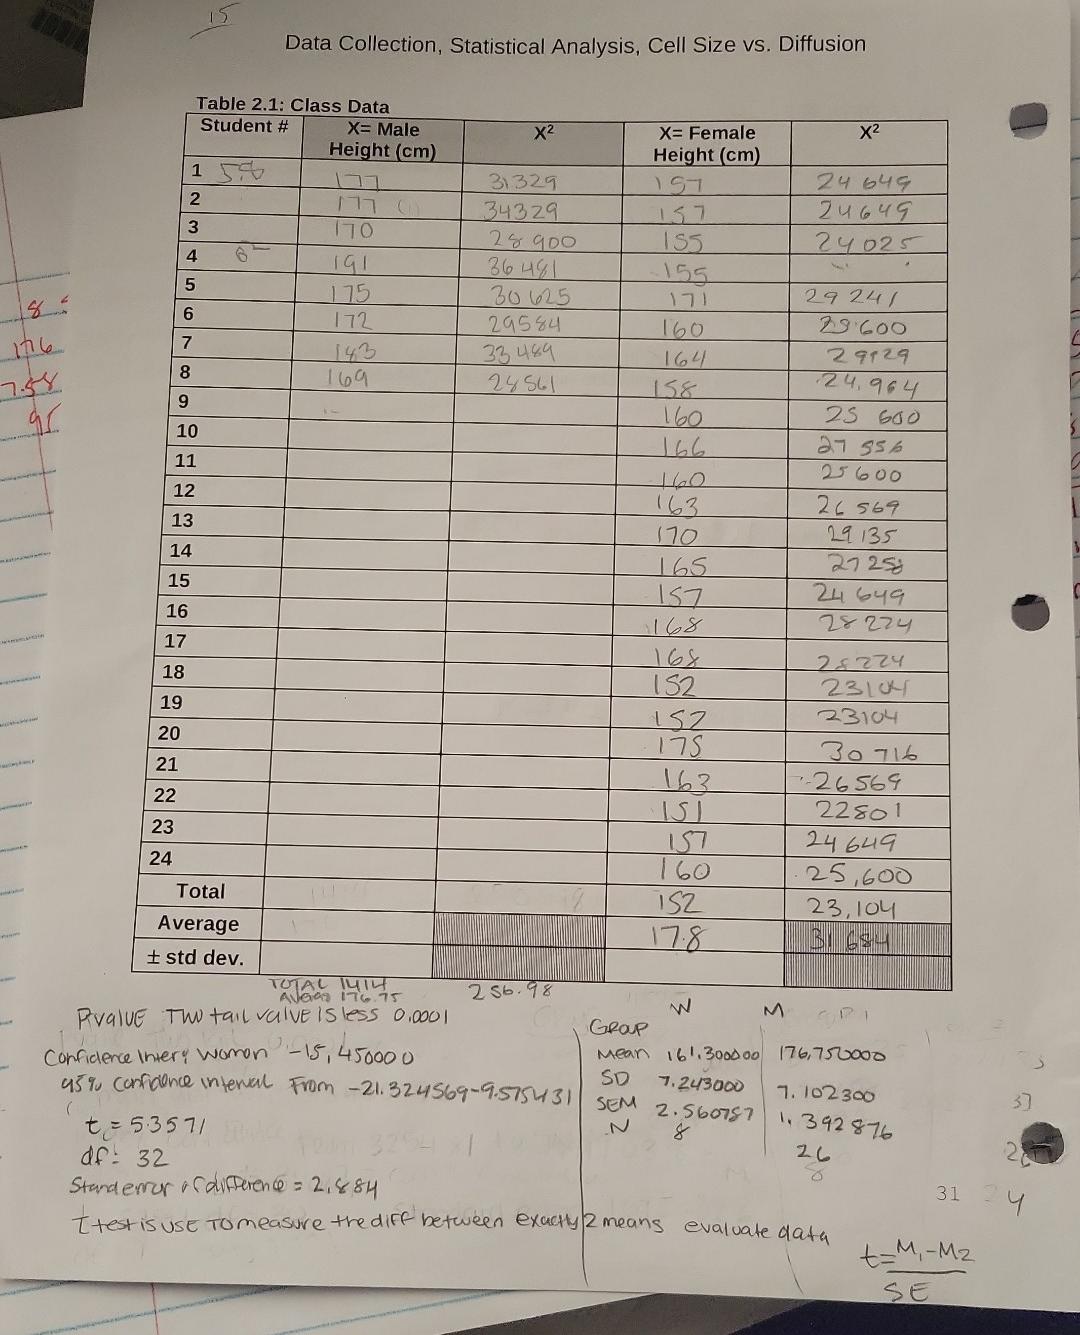 15
Data Collection, Statistical Analysis, Cell Size vs. Diffusion
Table 2.1: Class Data
Student # X= Male Height (cm) X² X= Female Height (cm) X²
1 5,8 177 31329 157 24 649
2 177 (1) 34329 157 24649
3 170 28 900 155 24 025
4 6 191 36481 155
5 175 30 625 171 29 241
6 172 29584 160 25 600
7 183 33 489 164 29929
8 169 28561 158 24,964
9 160 25 600
10 166 27 556
11 160 25600
12 163 26 569
13 170 29 135
14 165 2725
15 157 24 649
16 168 28 224
17 168 28224
18 152 23104
19 152 23104
20 175 30 716
21 163 26569
22 151 22801
23 157 24 649
24 160 25,600
Total 152 23,104
Average 17.8 31 684
± std dev.
TOTAL 1414
Averag 176.75
256.98
PvalUE Two tail value is less 0.0001
Confidence Inter women -15,450000
95% confidence interval From -21.324569-9.575431
t = 5.3571
df: 32
Stand error of difference = 2.884
t test is use to measure the diff between exactly 2 means evaluate data
W M
Group
Mean 161.300000 176,750000
SD 7.243000 7.102300
SEM 2.560787 1.392876
N 8 26
8
8
176
7.58
95
37
26
31 24
t=M₁-M2
SE